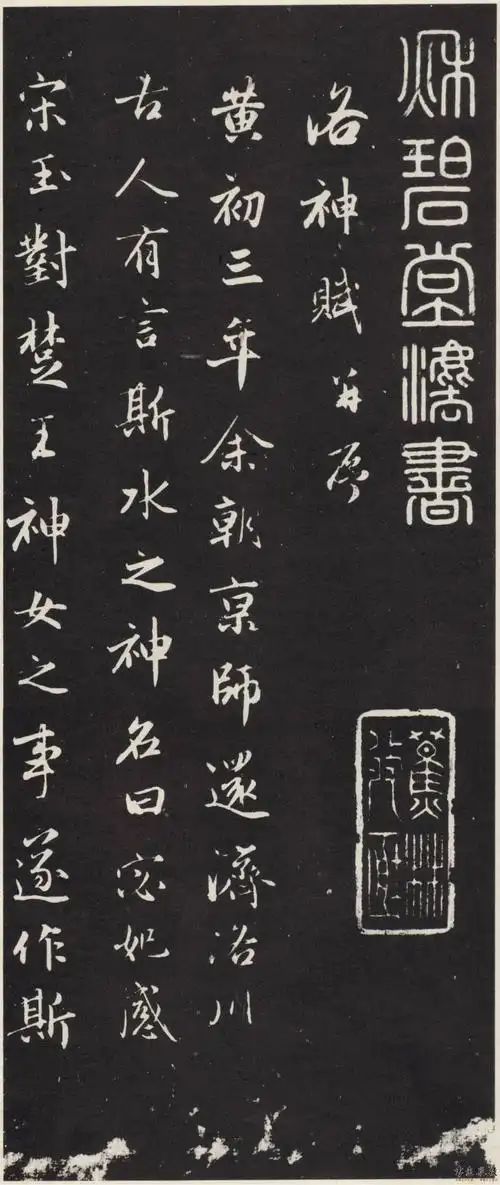 秌碧堂灋書
蕉林
洛神賦并序
黄初三年余朝京師還濟洛川
古人有言斯水之神名曰宓妃感
宋玉對楚王神女之事遂作斯